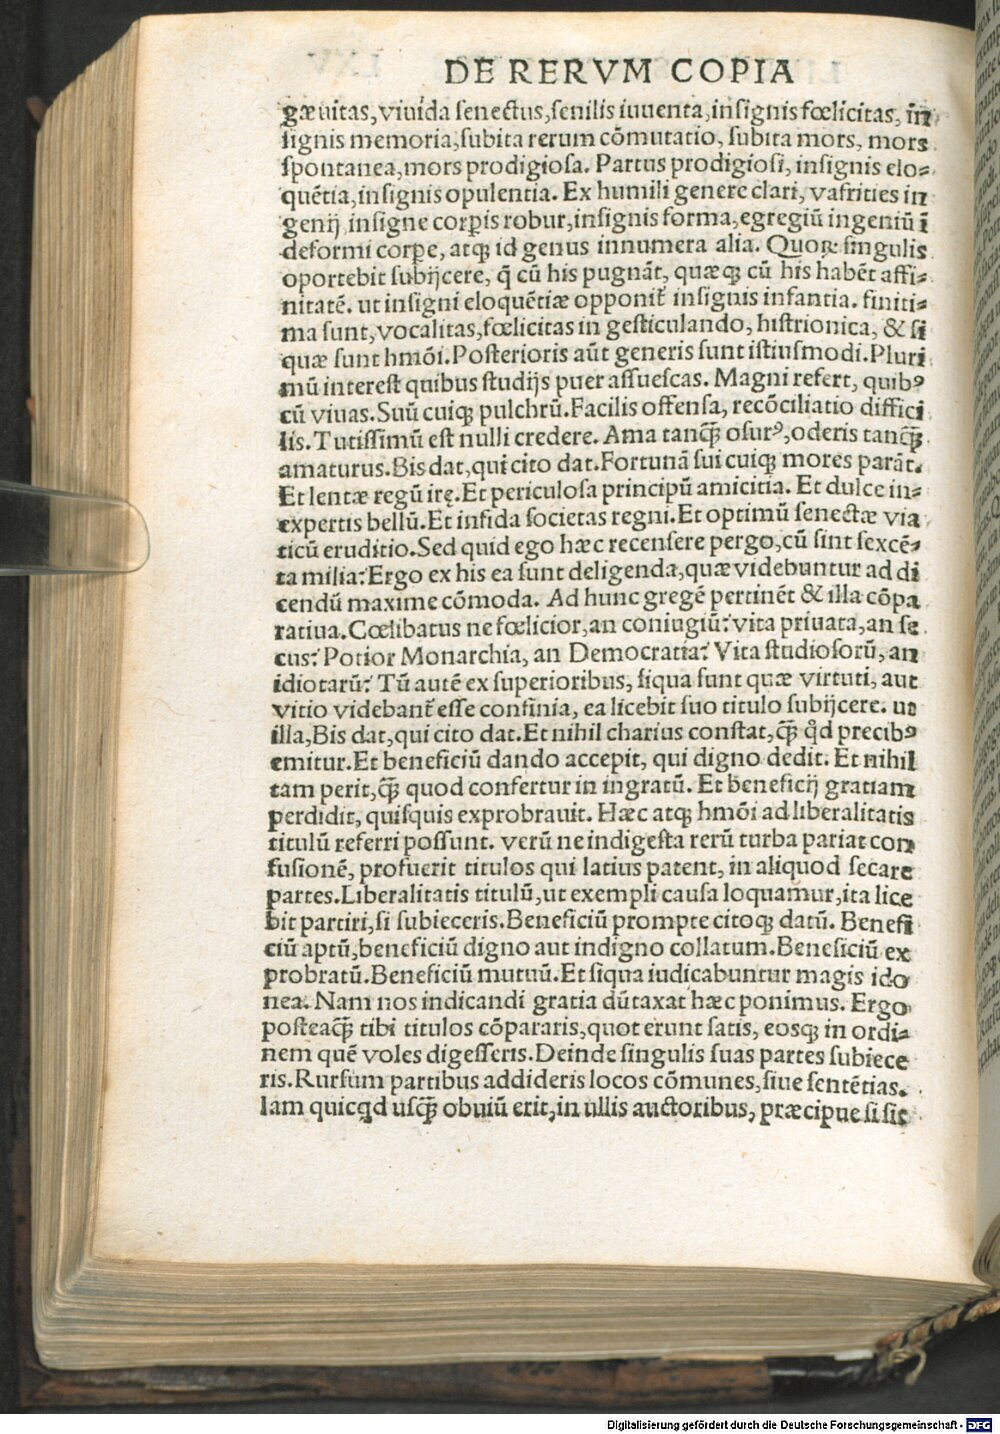 DE RERVM COPIA
gæuitas, viuida ſenectus, ſenilis iuuenta, inſignis fœlicitas, in
ſignis memoria, ſubita rerum cõmutatio, ſubita mors, mors
ſpontanea, mors prodigioſa. Partus prodigioſi, inſignis elo-
quẽtia, inſignis opulentia. Ex humili genere clari, vafrities in
genij inſigne corꝑis robur, inſignis forma, egregiũ ingeniũ ĩ
deformi corꝑe, atqꝫ id genus innumera alia. Quoꝝ ſingulis
oportebit ſubijcere, q̃ cũ his pugnãt, quæqꝫ cũ his habẽt affi-
nitatẽ. ut inſigni eloquẽtiæ opponit᷑ inſignis infantia. finiti-
ma ſunt, vocalitas, fœlicitas in geſticulando, hiſtrionica, & ſi
quæ ſunt hmõi. Poſterioris aũt generis ſunt iſtiuſmodi. Pluri
mũ intereſt quibus ſtudijs puer aſſueſcas. Magni refert, quibꝰ
cũ viuas. Suũ cuiqꝫ pulchrũ. Facilis offenſa, recõciliatio diffici
lis. Tutiſſimũ eſt nulli credere. Ama tanꝙ̃ oſurꝰ, oderis tanꝙ̃
amaturus. Bis dat, qui cito dat. Fortunã ſui cuiqꝫ mores parãt.
Et lentæ regũ irę. Et periculoſa principũ amicitia. Et dulce in-
expertis bellũ. Et infida ſocietas regni. Et optimũ ſenectæ via
ticũ eruditio. Sed quid ego hæc recenſere pergo, cũ ſint ſexcẽ-
ta milia? Ergo ex his ea ſunt deligenda, quæ videbuntur ad di
cendũ maxime cõmoda. Ad hunc gregẽ pertinẽt & illa cõpa
ratiua. Cœlibatus ne fœlicior, an coniugiũ? vita priuata, an ſe
cus? Potior Monarchia, an Democratia? Vita ſtudioſorũ, an
idiotarũ? Tũ autẽ ex ſuperioribus, ſiqua ſunt quæ virtuti, aut
vitio videbant᷑ eſſe confinia, ea licebit ſuo titulo ſubijcere. ut
illa, Bis dat, qui cito dat. Et nihil charius conſtat, ꝙ̃ qd̃ precibꝰ
emitur. Et beneficiũ dando accepit, qui digno dedit. Et nihil
tam perit, ꝙ̃ quod confertur in ingratũ. Et beneficij gratiam
perdidit, quiſquis exprobrauit. Hæc atqꝫ hmõi ad liberalitatis
titulũ referri poſſunt. verũ ne indigeſta rerũ turba pariat con
fuſionẽ, profuerit titulos qui latius patent, in aliquod ſecare
partes. Liberalitatis titulũ, ut exempli cauſa loquamur, ita lice
bit partiri, ſi ſubieceris. Beneficiũ prompte citoqꝫ datũ. Benefi
ciũ aptũ, beneficiũ digno aut indigno collatum. Beneficiũ ex
probratũ. Beneficiũ mutuũ. Et ſiqua iudicabuntur magis ido
nea. Nam nos indicandi gratia dũtaxat hæc ponimus. Ergo
poſteaꝙ̃ tibi titulos cõpararis, quot erunt ſatis, eosqꝫ in ordi-
nem quẽ voles digeſſeris. Deinde ſingulis ſuas partes ſubiece
ris. Rurſum partibus addideris locos cõmunes, ſiue ſentẽtias.
Iam quicqd uſꝙ̃ obuiũ erit, in ullis auctoribus, præcipue ſi ſit
Digitalisierung gefördert durch die Deutsche Forschungsgemeinschaft - DFG